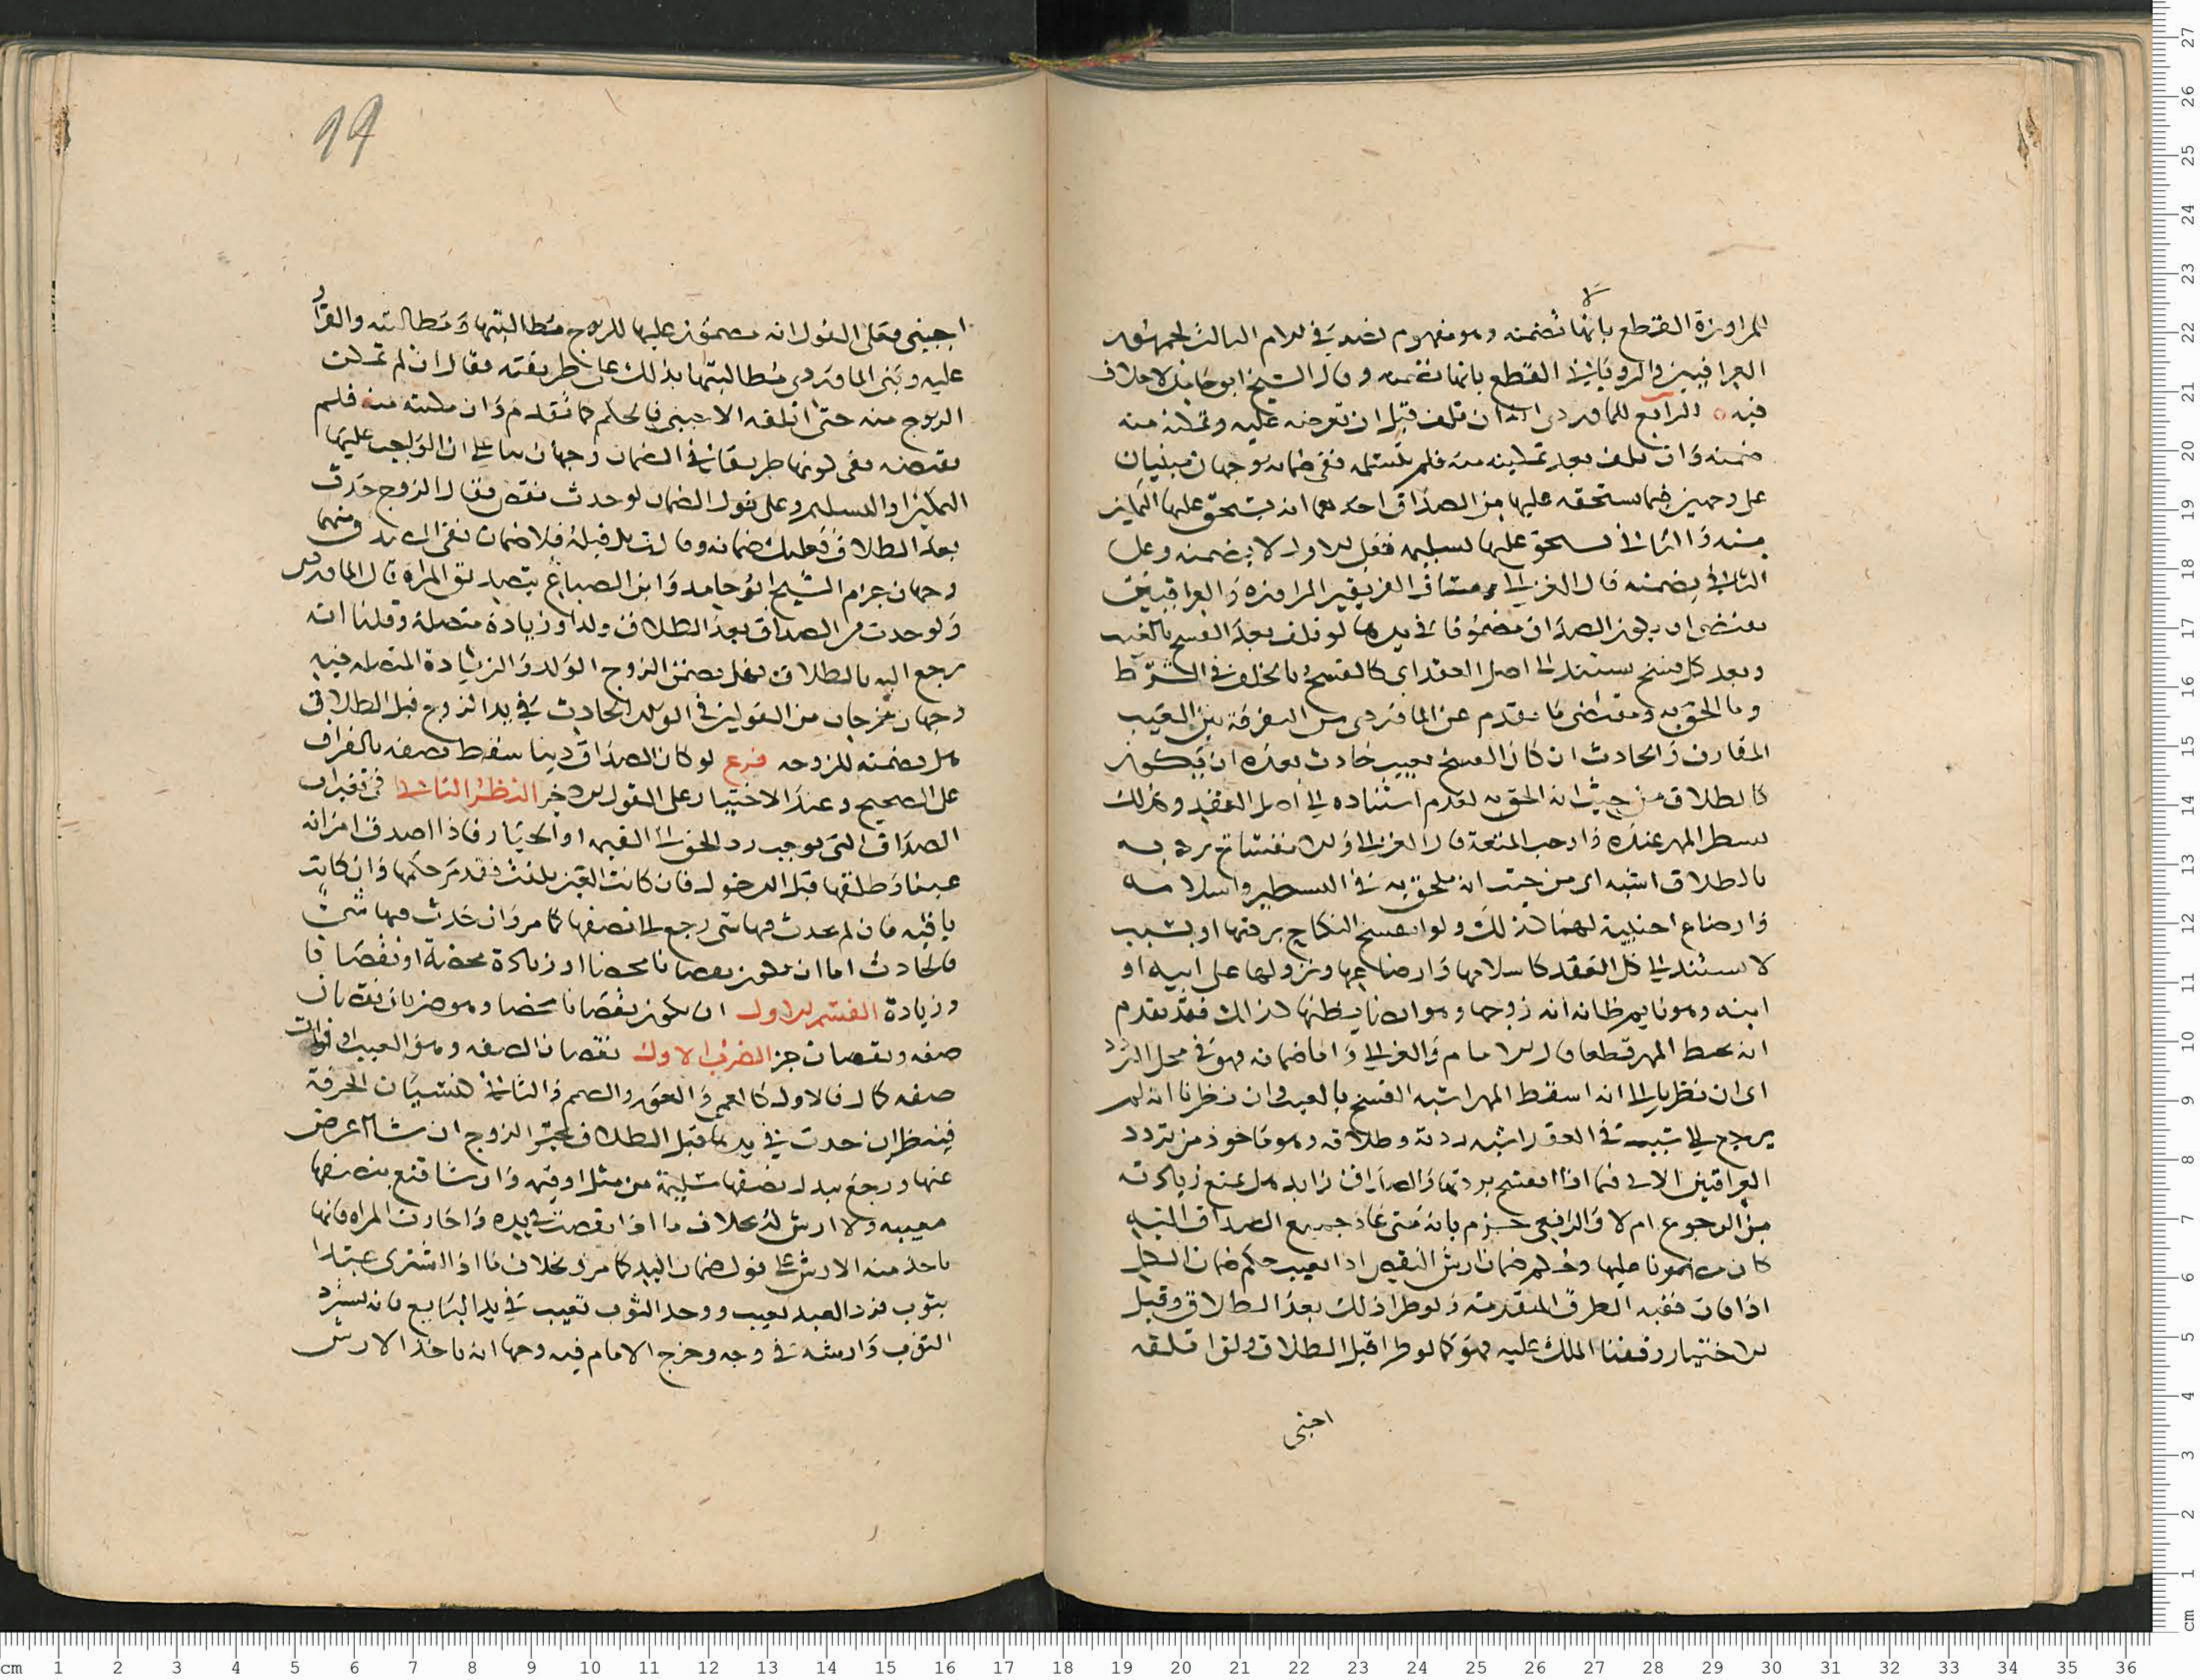 المراوزة القطع بانها لا تضمنه وهو مفهوم نصه في الام الثالث لجمهور
العراقيين والروياني القطع بانها تضمنه وقال الشيخ ابو حامد لا خلاف
فيه الرابع للماوردي ان تلف قبل ان تعرضه عليه وتمكنه منه
ضمنته وان تلف بعد تمكينه منه فلم يتسلمه ففي ضمانه وجهان مبنيان
على وجهين فيما يستحقه عليها من الصداق احدهما انه يستحق عليها التمكين
منه والثاني يستحق عليها تسليمه فعلى الاول لا يضمنه وعلى
الثاني يضمنه قال الغزالي ومساق الفريقين المراوزة والعراقيين
يقتضي ان يكون الصداق مضمونا في يدها لو تلف بعد الفسخ بالعيب
وبعد كل فسخ يستند الى اصل العقد اي كالفسخ بالخلف في الشرط
وما الحق به ومقتضى ما تقدم عن الماوردي من التفرقة بين العيب
المقارن والحادث ان كان الفسخ بعيب حادث بعده ان يكون
كالطلاق من حيث انه الحق به لعدم استناده الى اصل العقد وكذلك
يسطر المهر عنده واوجب المتعة قال الغزالي والانفساخ بردته
بالطلاق اشبه اي من حيث انه ملحق به في التشطير واسلامه
وارضاع اجنبية لهما كذلك ولو انفسخ النكاح بردتها او بسبب
لا يستند الى كل العقد كاسلامها وارضاعها ونزولها على ابيه او
ابنه وهو نايم ظانة انه زوجها وهو ايضا يظنها كذلك فقد تقدم
انه يسقط المهر قطعا قال الامام والغزالي واما ضمانه فهو في محل التردد
اي ان نظرنا الى انه اسقط المهر اشبه الفسخ بالعيب وان نظرنا انه لم
يرجع الى سبب في العقد اشبه ردته وطلاقه وهو ماخوذ من تردد
العراقيين الاتي فيما اذا انفسخ بردتها والصداق زايد هل يمنع زيادته
من الرجوع ام لا والرافعي جزم بانه متى عاد جميع الصداق اليه
كان مضمونا عليها وحكم ضمان ارش النقص اذا تعيب حكم ضمان الكل
اذا فات ففيه الطرق المتقدمة ولو طرا ذلك بعد الطلاق وقبل
الاختيار وقفنا الملك عليه فهو كما لو طرا قبل الطلاق ولو اتلفه
اجنبي
99
اجنبي فعلى القول انه مضمون عليها للزوج مطالبتها ومطالبته والقرار
عليه وبنى الماوردي مطالبتها بذلك على طريقته فقال ان لم تمكن
الزوج منه حتى اتلفه الاجنبي فالحكم كما تقدم وان مكنته منه فلم
يقبضه ففي كونها طريقا في الضمان وجهان بناء على ان الواجب عليها
التمكين او التسليم وعلى قول الضمان لو حدث نقص فقال الزوج حدث
بعد الطلاق فعليك ضمانه وقالت بل قبله فلا ضمان
وجهان جزم الشيخ ابو حامد وابن الصباغ بتصديق المراة قال الماوردي
ولو حدث من الصداق بعد الطلاق ولد او زيادة متصلة وقلنا انه
رجع اليه بالطلاق فهل يضمن الزوج الولد والزيادة المتصلة فيه
وجهان مخرجان من القولين في الولد الحادث في يد الزوج قبل الطلاق
هل يضمنه للزوجة فرع لو كان الصداق دينا سقط نصفه بالفراق
على الصحيح وعند الاختيار على القول الاخر النظر الثاني في تغيرات
الصداق التي توجب رد الحق الى القيمة او الخيار فاذا اصدق امراته
عينا وطلقها قبل الدخول فان كانت العين تلفت فقد مر حكمها وان كانت
باقية فان لم يحدث فيها شي رجع الى نصفها كما مر وان حدث فيها شي
فالحادث اما ان يكون نقصانا محضا او زيادة محضة او نقصانا
وزيادة القسم الاول ان يكون نقصانا محضا وهو ضربان نقصان
صفة ونقصان جزء الضرب الاول نقصان الصفة وهو العيب او فوات
صفة كمال فالاول كالعمى والعور والصمم والثاني كنسيان الحرفة
فينظر ان حدث في يدها قبل الطلاق تخير الزوج ان شا اعرض
عنها ورجع ببدل نصفها سليمة من مثل او قيمة وان شا قنع بنصفها
معيبة ولا ارش له بخلاف ما اذا نقصت في يده واختارت المراة فانها
تاخذ منه الارش على قول ضمان اليد كما مر وبخلاف ما اذا اشترى عبدا
بثوب فرد العبد بعيب ووجد الثوب تعيب في يد البايع فانه يسترد
الثوب وارشه في وجه وخرج الامام فيه وجها انه ياخذ الارش